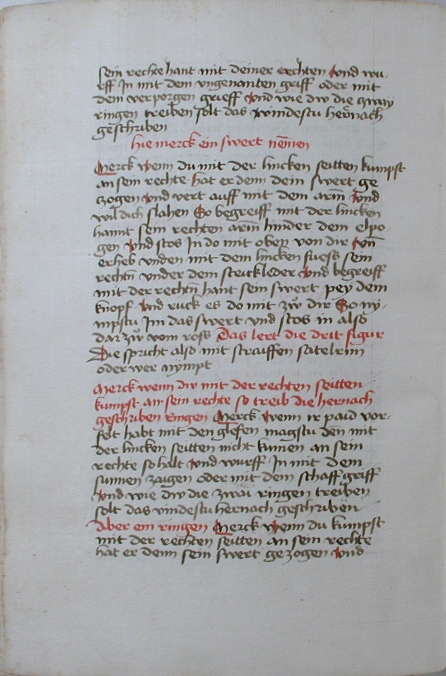 sein rechte hant mit deiner rechten Vnd wu
rff In mit dem vngenanten griff oder mit
dem verporgen grieff Vnd wie dw die zway
ringen treiben solt das vindestu hernach
geschriben
hie merck ein swert nemen
Merck wenn du mit der lincken seitten kumpst
an sein rechte hat er denn dein swert ge
zogen Vnd vert auff mit dem arm Vnd
wil dich slahen So begreiff mit der lincken
hannt sein rechten arm hinder dem elpo
gen Vnd stos In do mit oben von dir Vnd
erheb vnden mit dem lincken fuess sein
rechten vnder dem stuckleder Vnd begreiff
mit der rechten hant sein swert pey dem
knopf Vnd ruck es do mit zw dir So ny
mpstu Im das swert vnd stos in also
dar zw vom ross Das lert die drit figur
Die spricht also mit straiffen satelrim
oder wer nympt
Merck wenn dw mit der rechten seitten
kumpst an sein rechte so treib die hernach
geschriben Ringen Merck wenn ir paid vor
felt habt mit den glefen magstu den mit
der lincken seitten nicht kumen an sein
rechte so halt Vnd wurff In mit dem
sunnen zaigen oder mit dem schaff griff
Vnd wie dw die zwai ringen treiben
solt das vindestu hernach geschriben
Aber ein ringen Merck wenn du kumpst
mit der rechten seitten an sein rechte
hat er denn sein swert gezogen Vnd